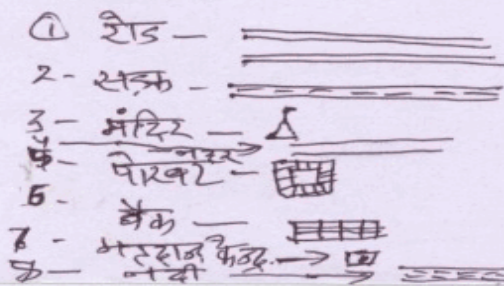 ① रोड —
2 - सड़क -
3 - मंदिर —
4 - नहर
5 - पोखर -
6 - बैंक —
7 - मतदान केन्द्र
8 - नदी